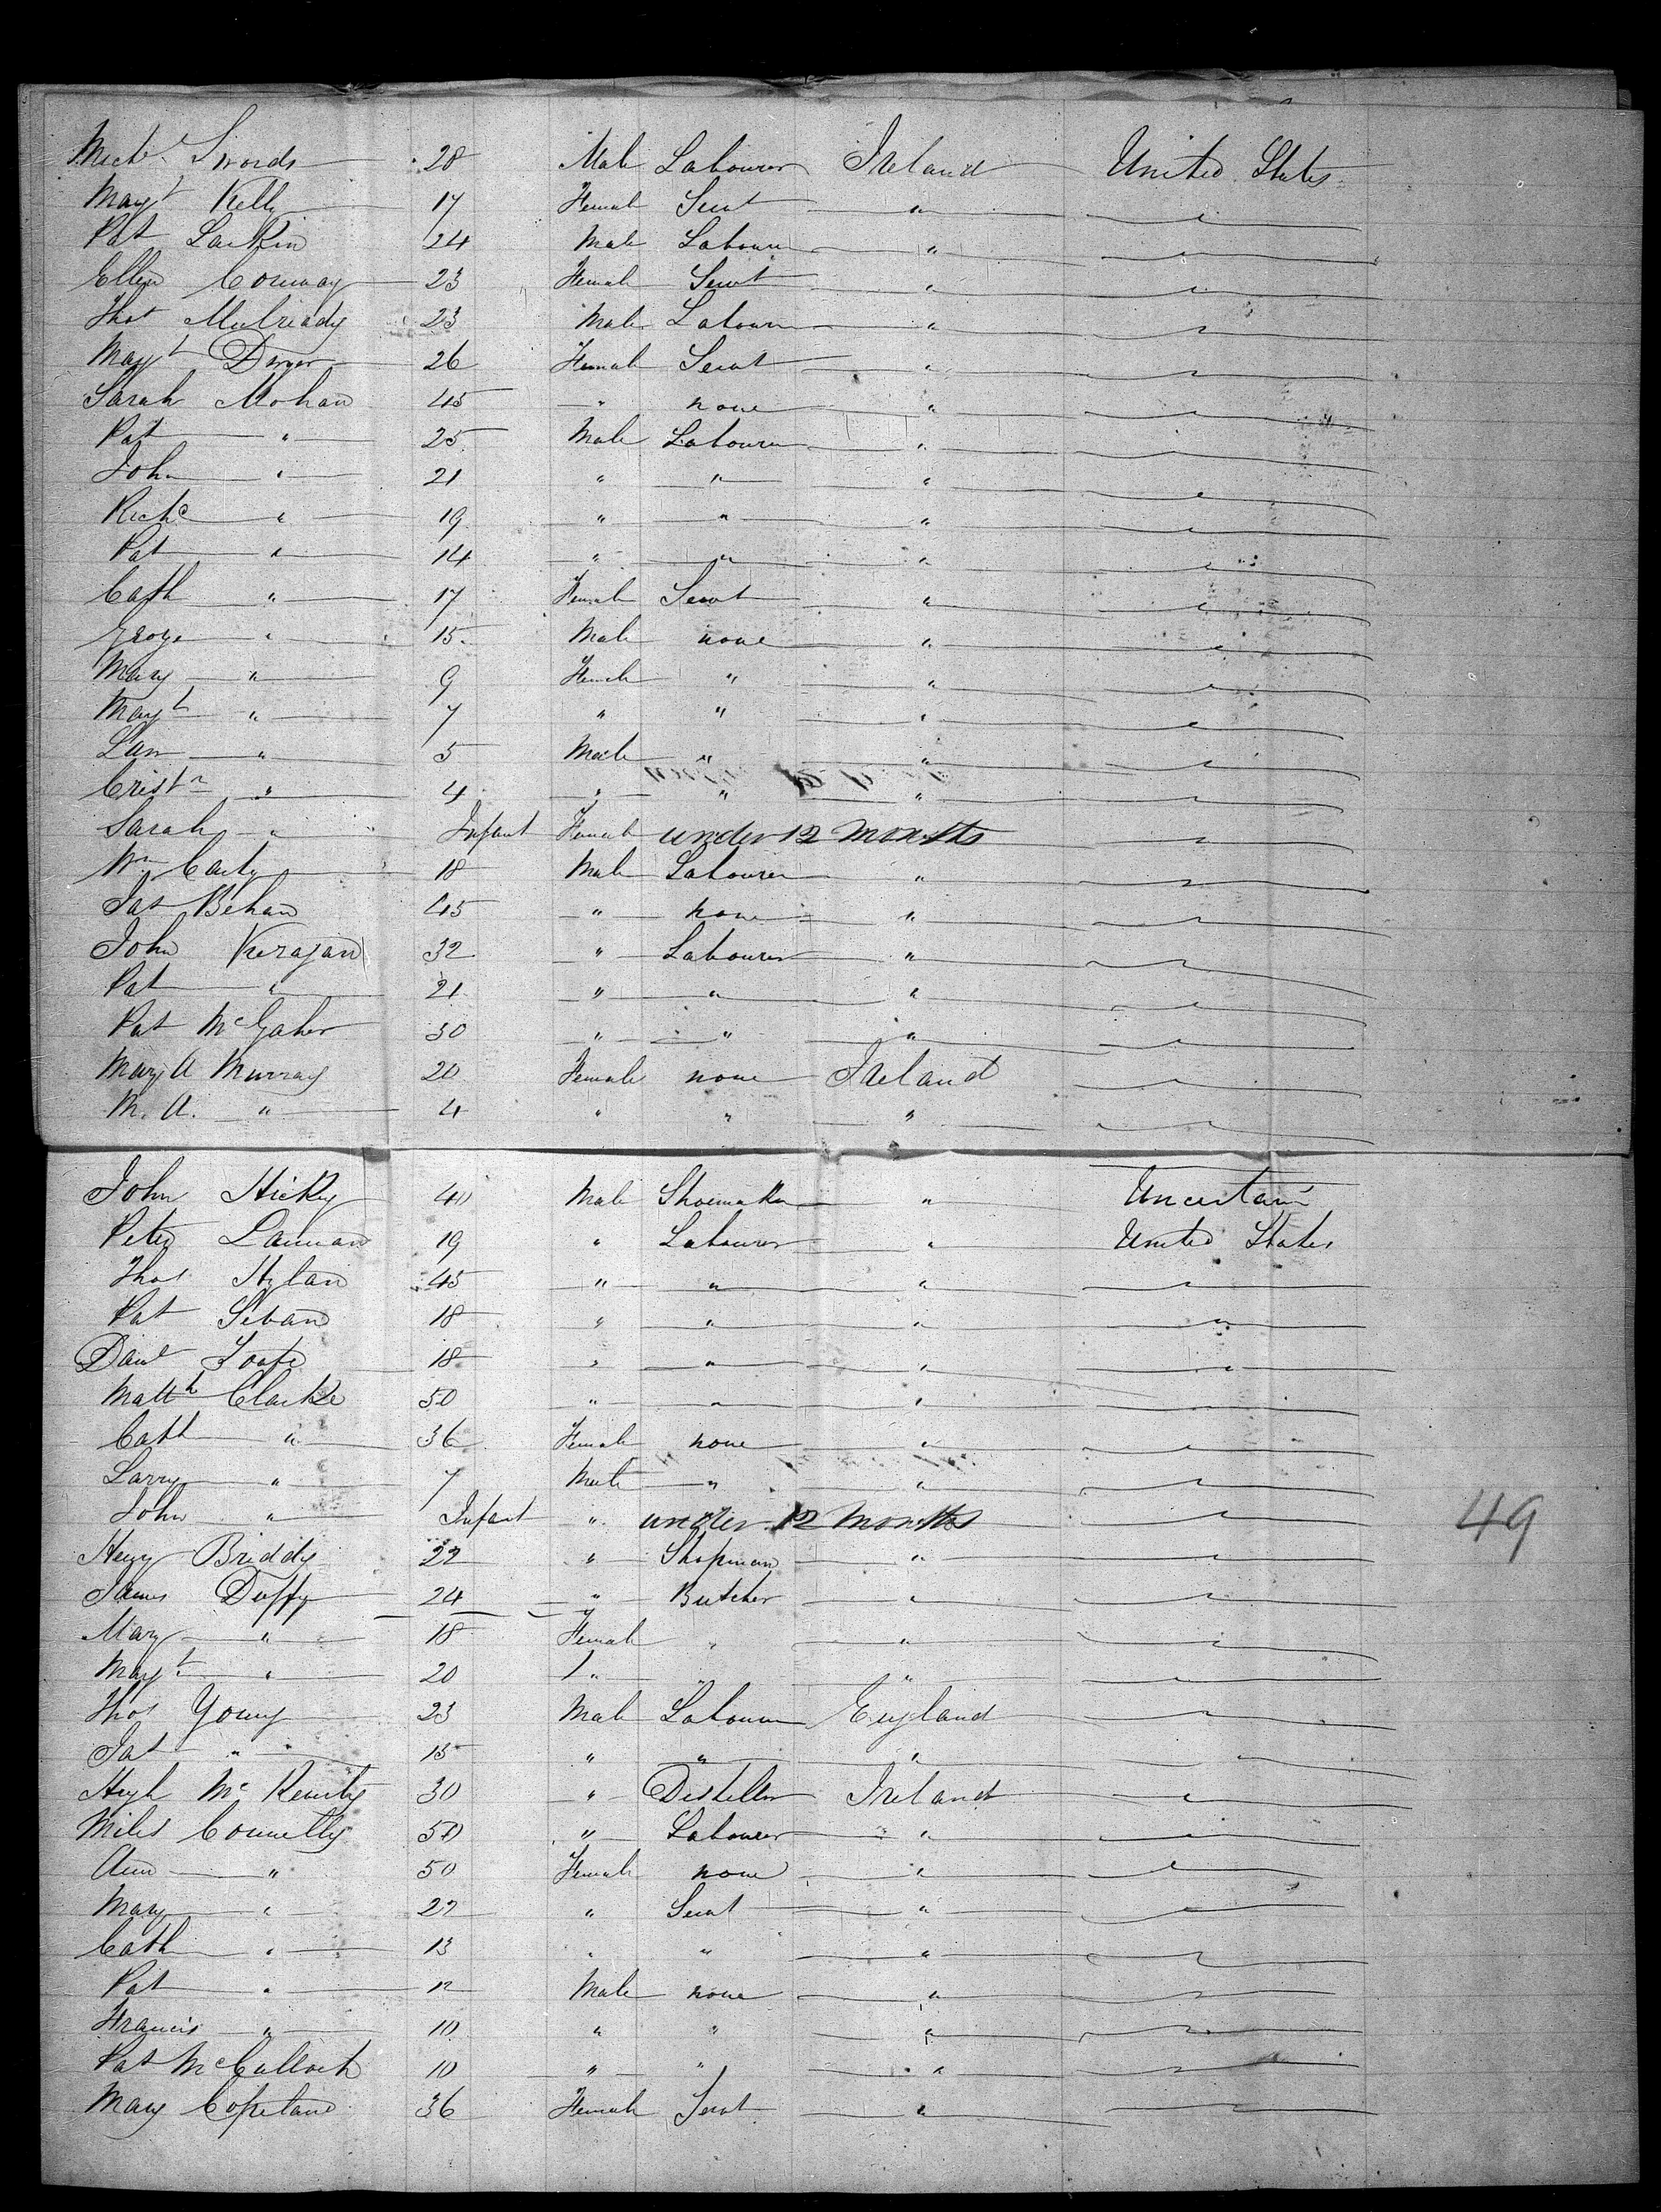 Mich^l Swords 28 Male Labourer Ireland United States
Marg^t Kelly 17 Female Servt " "
Pat Larkin 24 Male Labourer " "
Ellen Conway 23 Female Servt " "
Thos Mulready 23 Male Labourer " "
Marg^t Dwyer 26 Female Servt " "
Sarah Mohan 45 " none " "
Pat " 25 Male Labourer " "
John " 21 " " " "
Rich^d " 19 " " " "
Pat " 14 " " " "
Cath " 17 Female Servt " "
George " 15 Male none " "
Mary " 9 Female " " "
Marg^t " 7 " " " "
Law " 5 Male " " "
Crist^n " 4 " " " "
Sarah " Infant Female under 12 months "
Wm Carty 18 Male Labourer " "
Jas Behan 45 " none " "
John Keragan 32 " Labourer " "
Pat " 21 " " " "
Pat McGaher 30 " " " "
Mary A Murray 20 Female none Ireland "
M. A. " 4 " " " "
John Hickey 40 Male Shoemaker " Uncertain
Peter Lannan 19 " Labourer " United States
Thos Hylan 45 " " " "
Pat 18 " " " "
Danl 18 " " " "
Matt^h Clarke 50 " " " "
Cath " 36 Female none " "
Larry " 7 Male " " "
John " Infant " under 12 months "
49
Henry Briddy 22 " Shopman " "
James Duffy 24 " Butcher " "
Mary " 18 Female " " "
Marg^t " 20 " " " "
Thos Young 23 Male Labourer England "
Jas " 15 " " " "
Hugh Mc 30 " Distiller Ireland "
Miles Connelly 50 " Labourer " "
Ann " 50 Female none " "
Mary " 22 " Servt " "
Cath " 13 " " " "
Pat " 12 Male none " "
Francis " 10 " " " "
Pat McCulloch 10 " " " "
Mary Copeland 36 Female Servt " "